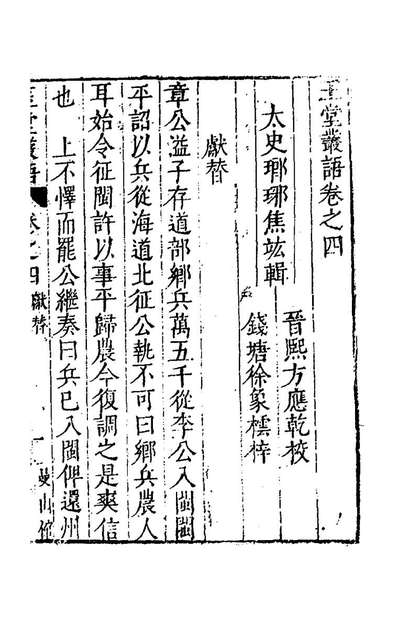 玉堂叢語卷之四
太史瑯琊焦竑輯
晉熙方應乾校
錢塘徐象橒梓
獻替
章公溢子存道部鄉兵萬五千從李公入閩閩
平詔以兵從海道北征公執不可曰鄉兵農人
耳始令征閩許以事平歸農今復調之是爽信
也　上不懌而罷公繼奏曰兵已入閩俾還州
獻替
一
曼山館